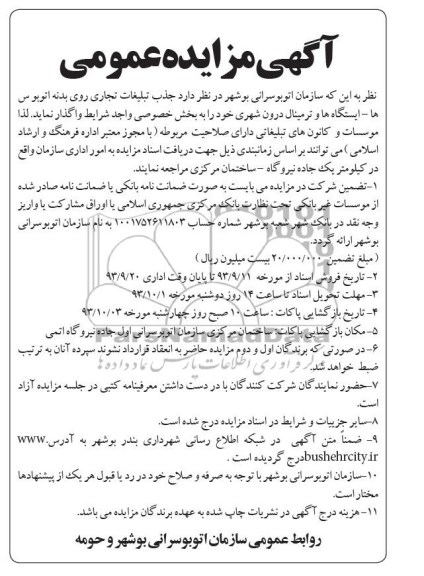 آگهی مزایده عمومی
نظر به این که سازمان اتوبوسرانی بوشهر در نظر دارد جذب تبلیغات تجاری روی بدنه اتوبوس
ها – ایستگاه ها و ترمینال درون شهری خود را به بخش خصوصی واجد شرایط واگذار نماید. لذا
موسسات و کانون های تبلیغاتی دارای صلاحیت مربوطه (با مجوز معتبر اداره فرهنگ و ارشاد
اسلامی) می توانند بر اساس زمانبندی ذیل جهت دریافت اسناد مزایده به امور اداری سازمان واقع
در کیلومتر یک جاده نیروگاه – ساختمان مرکزی مراجعه نمایند.
۱-تضمین شرکت در مزایده می بایست به صورت ضمانت نامه بانکی یا ضمانت نامه صادر شده
از موسسات غیر بانکی تحت نظارت بانک مرکزی جمهوری اسلامی یا اوراق مشارکت یا واریز
وجه نقد در بانک شهر شعبه بوشهر شماره حساب ۱۰۰۱۷۵۲۶۱۱۸۰۳ به نام سازمان اتوبوسرانی
بوشهر ارائه گردد.
(مبلغ تضمین ۲۰/۰۰۰/۰۰۰ بیست میلیون ریال)
۲- تاریخ فروش اسناد از مورخه ۹۳/۹/۱۱ تا پایان وقت اداری ۹۳/۹/۲۰
۳-مهلت تحویل اسناد تا ساعت ۱۴ روز دوشنبه مورخه ۹۳/۱۰/۱
۴- تاریخ بازگشایی پاکات : ساعت ۱۰ صبح روز چهارشنبه مورخه ۹۳/۱۰/۰۳
۵- مکان بازگشایی پاکات: ساختمان مرکزی سازمان اتوبوسرانی اول جاده نیروگاه اتمی
۶-در صورتی که برندگان اول و دوم مزایده حاضر به انعقاد قرارداد نشوند سپرده آنان به ترتیب
ضبط خواهد شد.
۷-حضور نمایندگان شرکت کنندگان با در دست داشتن معرفینامه کتبی در جلسه مزایده آزاد
است.
۸-سایر جزییات و شرایط در اسناد مزایده درج شده است.
۹- ضمناً متن آگهی در شبکه اطلاع رسانی شهرداری بندر بوشهر به آدرس www.
bushehrcity.ir درج گردیده است .
۱۰-سازمان اتوبوسرانی بوشهر با توجه به صرفه و صلاح خود در رد یا قبول هر یک از پیشنهادها
مختار است.
۱۱- هزینه درج آگهی در نشریات چاپ شده به عهده برندگان مزایده می باشد.
روابط عمومی سازمان اتوبوسرانی بوشهر و حومه